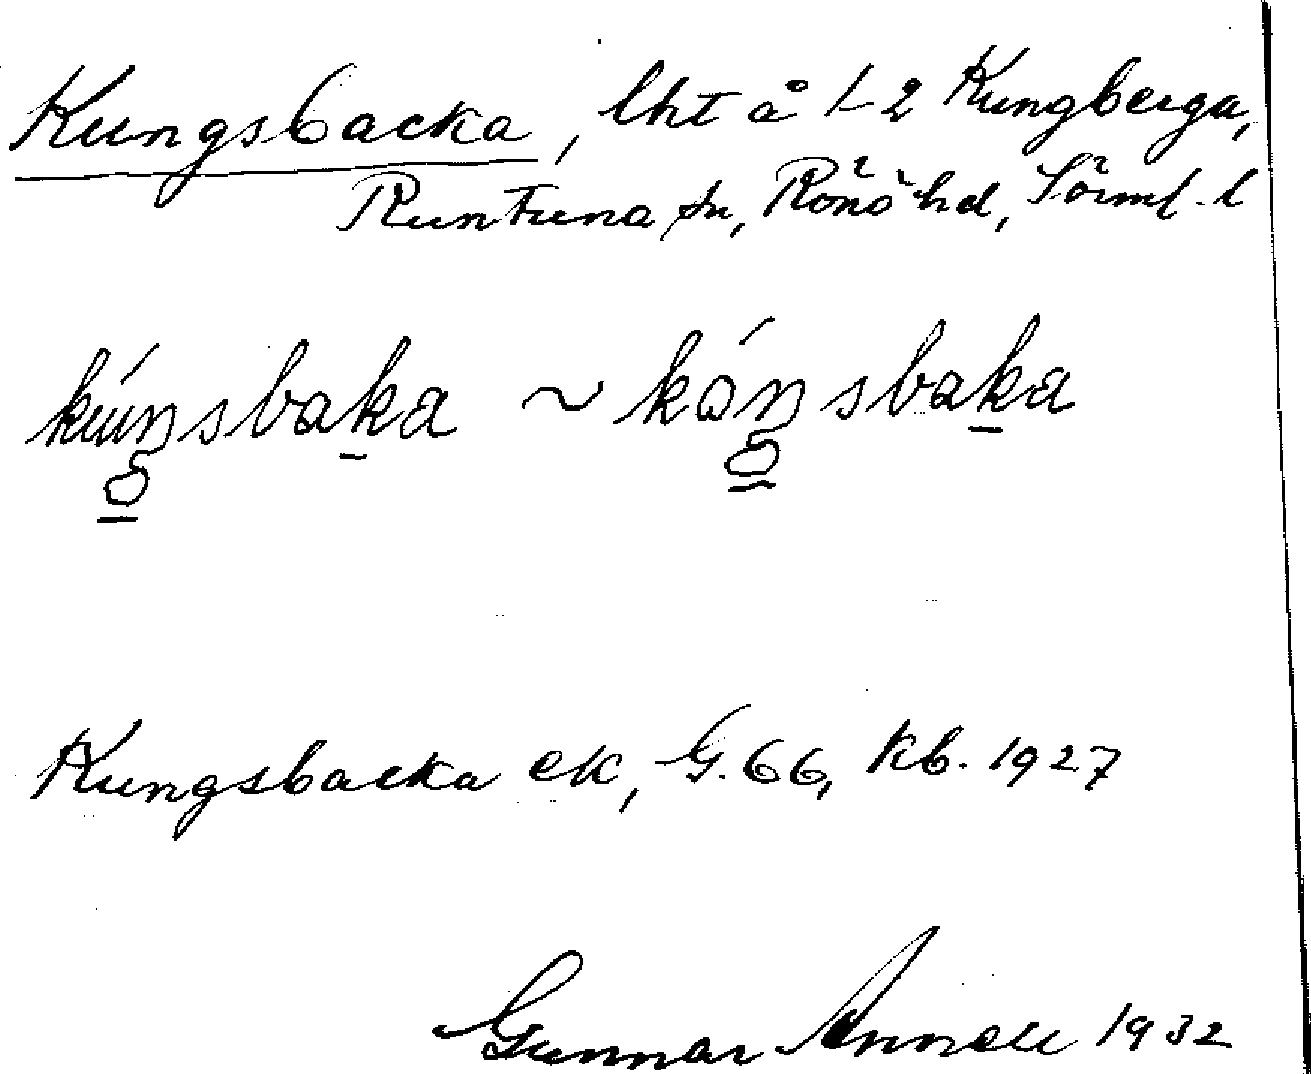 Kungsbacka, lht å 1-2 Kungberga,
Runtuna sn, Rönö hd, Sörml. l
kúŋsbaka ~ kóŋsbaka
Kungsbacka ek, G. 66, Kb. 1927
Gunnar Annell 1932